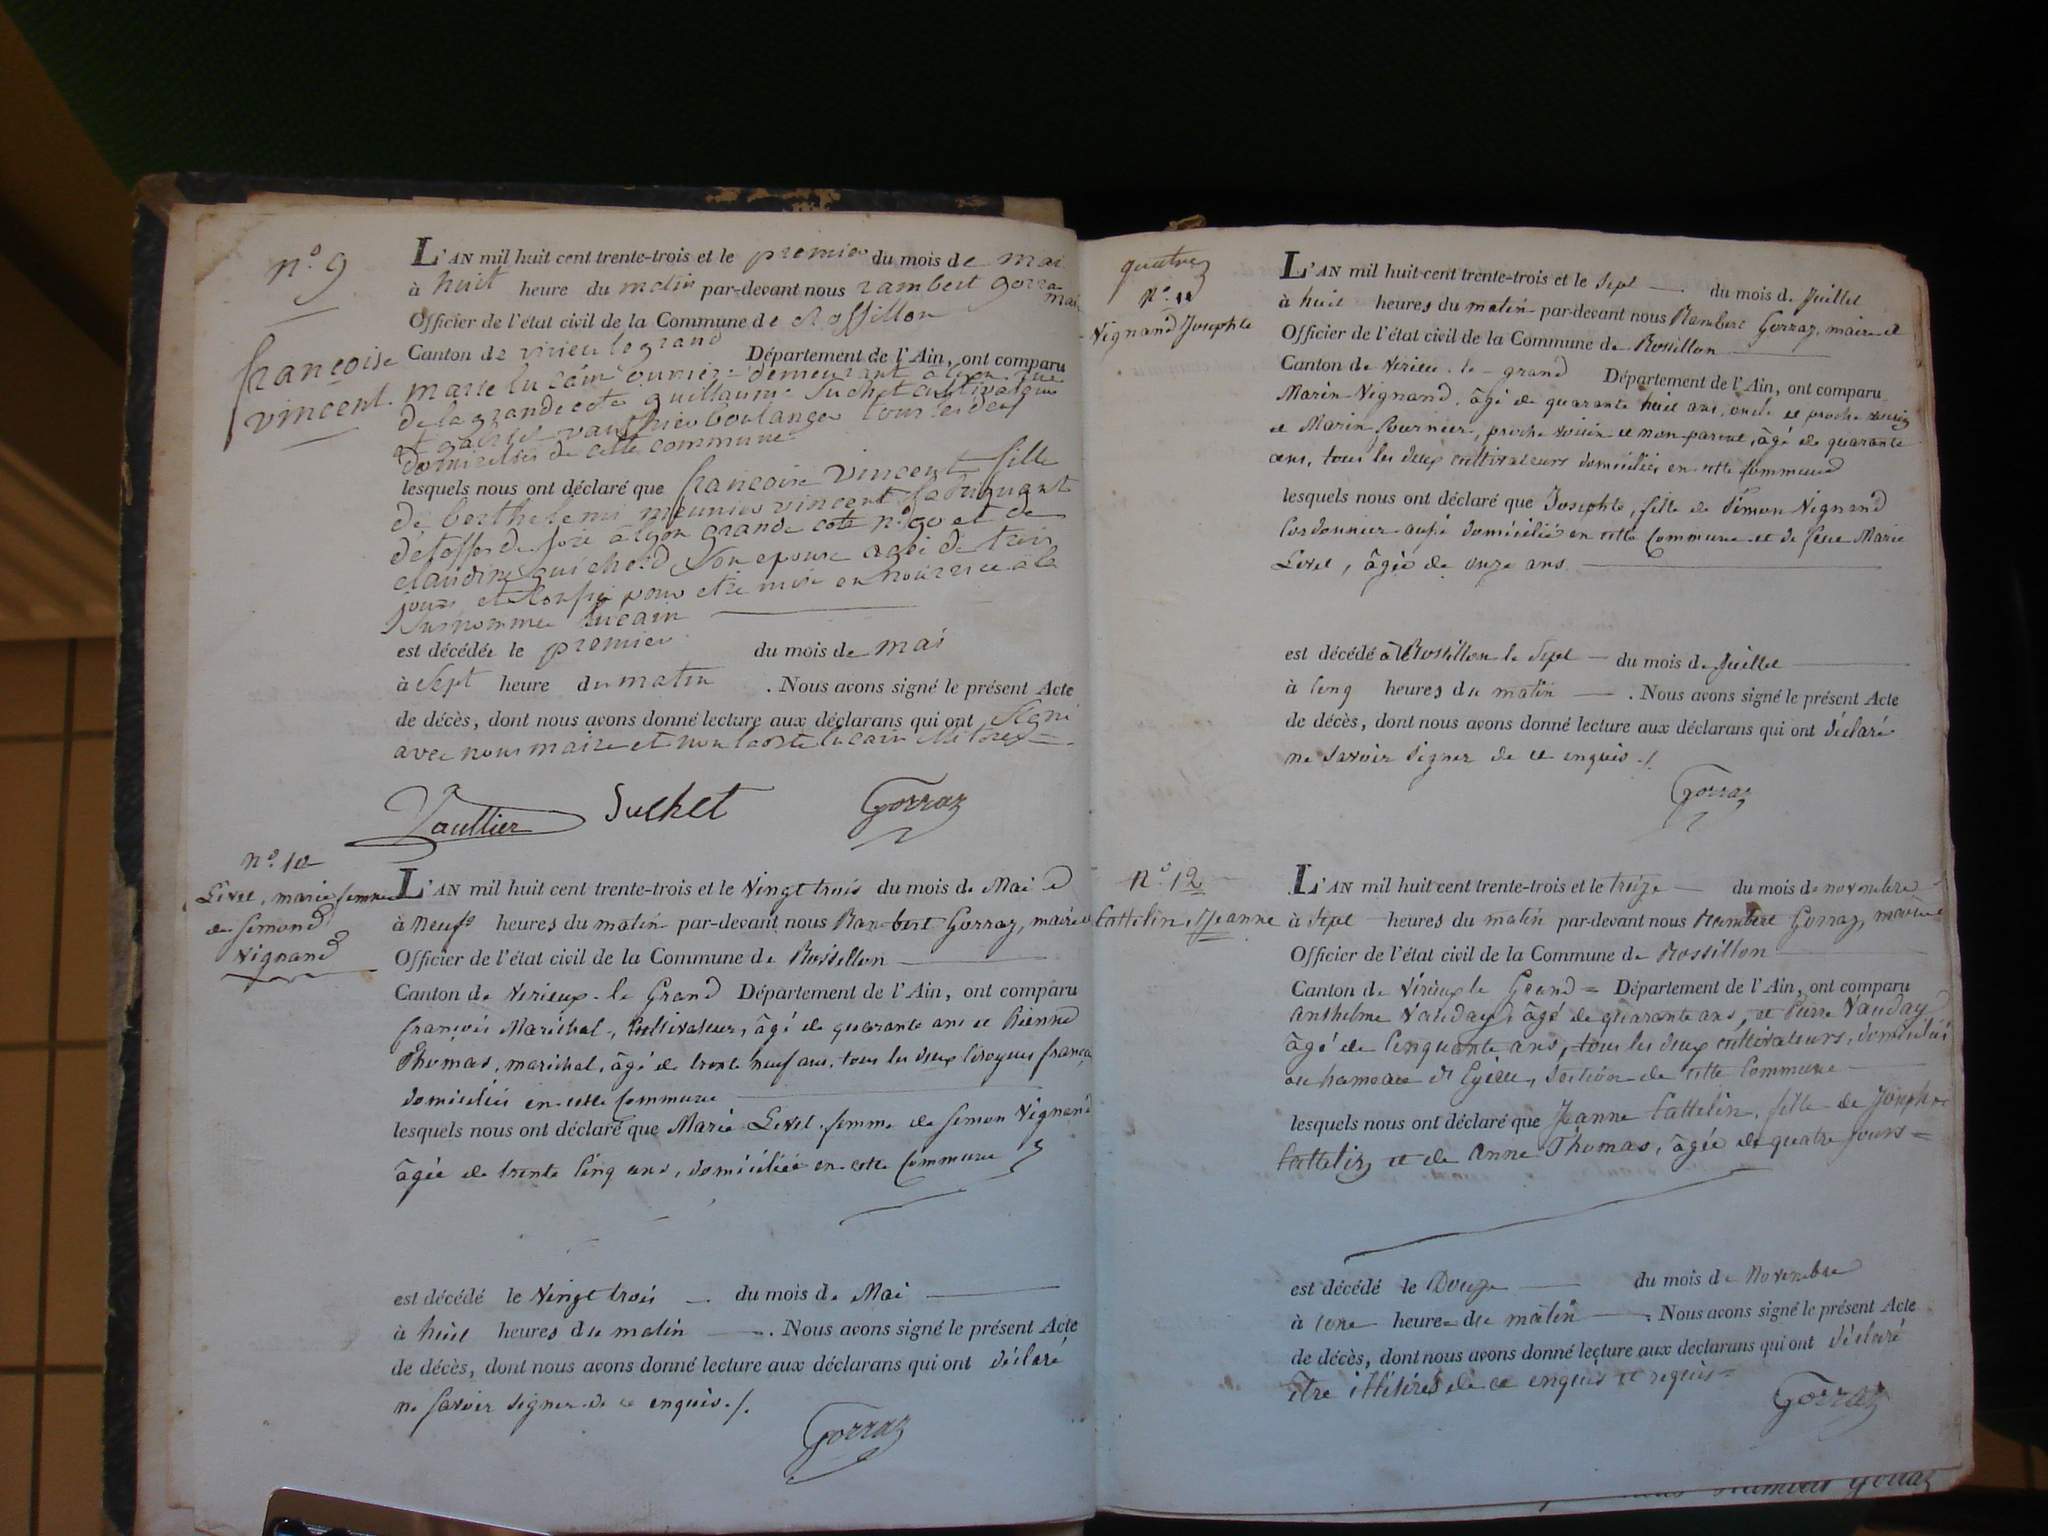 n.o 9
françoise
vincent.
L'AN mil huit cent trente-trois et le premier du mois de mai
à huit heure du matin par-devant nous rambert gorra
mai
Officier de l'état civil de la Commune de Rossillon
Canton de virieu le grand Département de l'Ain, ont comparu
marie lucain ouvriere demeurant a lyon rue
de la grande cote guillaume Suchet cultivateur
et vauthier boulanger tous les deux
domicilies de cette commune
lesquels nous ont déclaré que francoise vincent fille
de berthelemi meunier vincent fabriquant
d'etoffes de soie a lyon grande cote n.o 90 et de
claudine guicherd Son epouse agée de trois
jours et pour etre mise en nourrice a la
Surnommee lucain
est décédée le premier du mois de mai
à Sept heure du matin . Nous avons signé le présent Acte
de décès, dont nous avons donné lecture aux déclarans qui ont Signé
avec nous maire et non la dite lucain
Vaullier Suchet Gorraz
n.o 10
Livet, marie femme
de Simond
Vignand
L'AN mil huit cent trente-trois et le Vingt trois du mois de Mai
à Neuf heures du matin par-devant nous Rambert Gorraz, maire et
Officier de l'état civil de la Commune de Rossillon
Canton de Virieux-le Grand Département de l'Ain, ont comparu
françois Maréchal, Cultivateur, âgé de quarante ans et
Thomas, maréchal, âgé de trente neuf ans, tous les deux Citoyens françai
domiciliés en cette Commune
lesquels nous ont déclaré que Marie Livet femme de Simon Vignand
âgée de trente Cinq ans, domiciliée en cette Commune
est décédé le Vingt trois du mois de Mai
à huit heures du matin . Nous avons signé le présent Acte
de décès, dont nous avons donné lecture aux déclarans qui ont déclaré
ne Savoir Signer de ce enquis ./.
Gorraz
quatre
N.o 11
Vignand Josephte
L'AN mil huit cent trente-trois et le Sept du mois de Juillet
à huit heures du matin par-devant nous Rambert Gorraz, maire et
Officier de l'état civil de la Commune de Rossillon
Canton de Virieu-le-grand Département de l'Ain, ont comparu
Marin Vignand, âgé de quarante huit ans, oncle et proche voisin
et Marin fournier, proche voisin et non parent, âgé de quarante
ans, tous les deux cultivateurs domiciliés en cette Commune
lesquels nous ont déclaré que Josephte, fille de Simon Vignand
Cordonnier aussi domicilié en cette Commune et de feue Marie
Livet, âgée de onze ans
est décédé à Rossillon le Sept du mois de Juillet
à Cinq heures du matin . Nous avons signé le présent Acte
de décès, dont nous avons donné lecture aux déclarans qui ont déclaré
ne Savoir Signer de ce enquis ./.
Gorraz
N.o 12
Cattelin, Jeanne
L'AN mil huit cent trente-trois et le treize du mois de novembre
à Sept heures du matin par-devant nous Rambert Gorraz, maire
Officier de l'état civil de la Commune de Rossillon
Canton de Virieux le Grand = Département de l'Ain, ont comparu
Anthelme Vauday, âgé de quarante ans, et Pierre Vauday
âgé de Cinquante ans, tous les deux cultivateurs, domiciliés
au hameau d' Egieu, Section de cette Commune
lesquels nous ont déclaré que Jeanne Cattelin, fille de Josephe
Cattelin et de Anne Thomas, âgée de quatre jours =
est décédé le Douze du mois de Novembre
à une heure du matin . Nous avons signé le présent Acte
de décès, dont nous avons donné lecture aux declarans qui ont déclaré
être illitérés de ce enquis et requis =
Gorraz